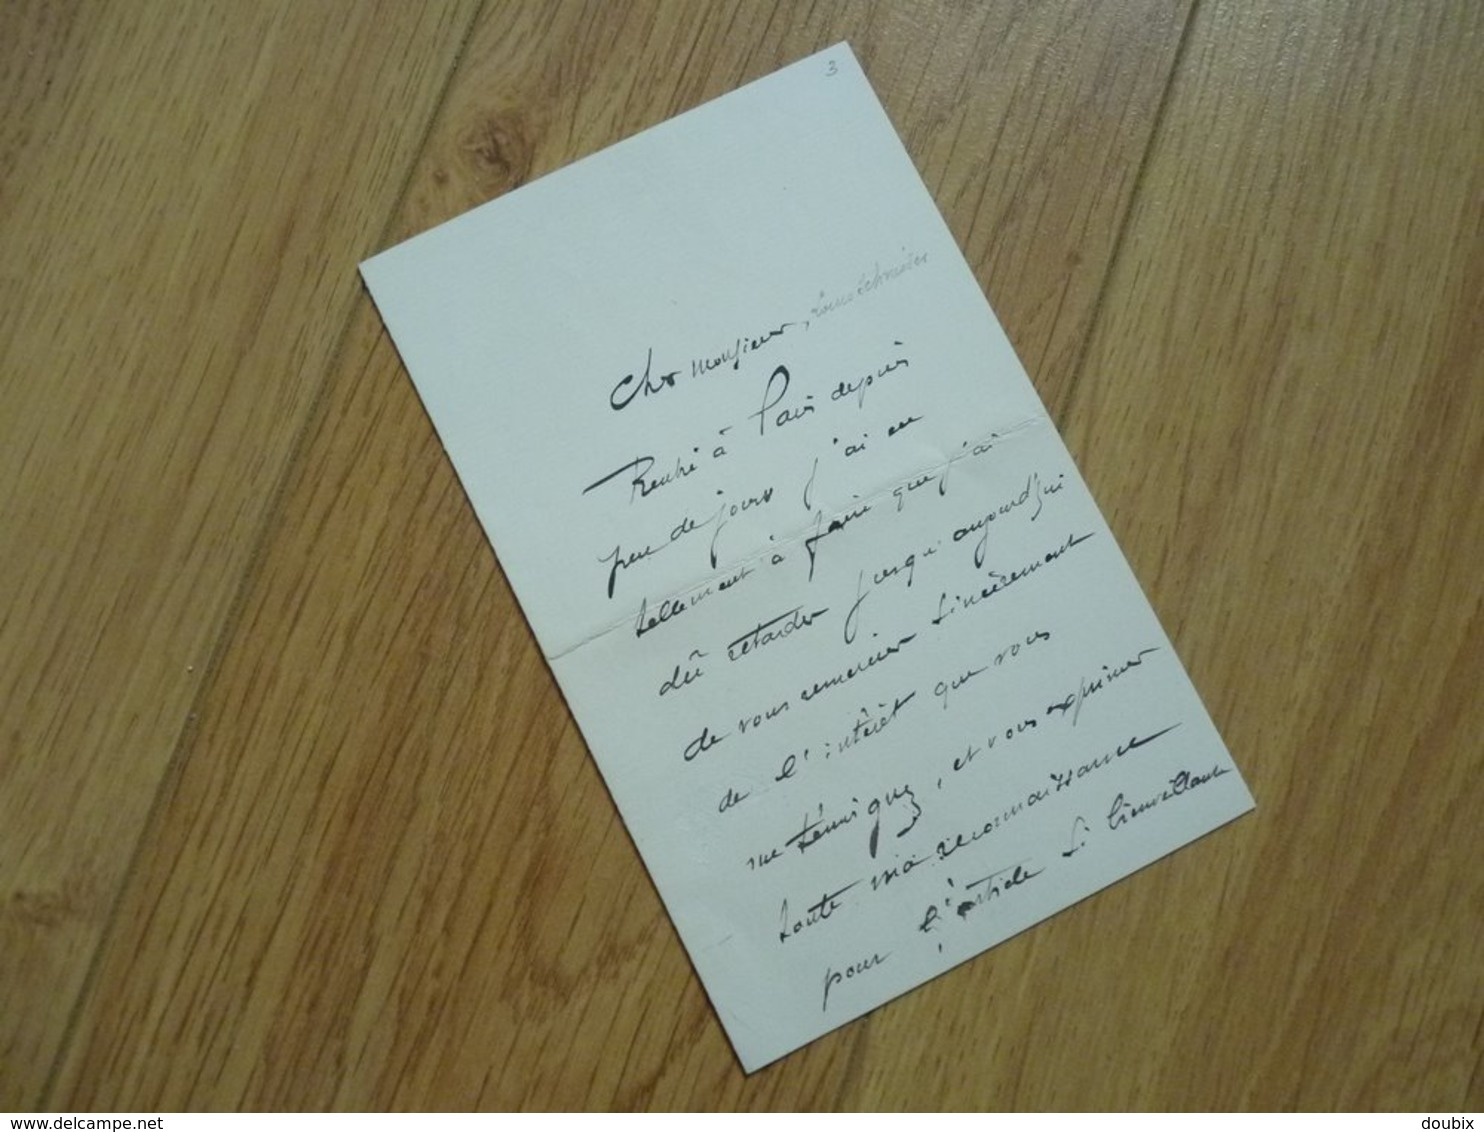 3
Cher Monsieur, Louis Schneider
Rentré à Paris depuis
peu de jours j'ai eu
tellement à faire que j'ai
dû retarder jusqu'aujourd'hui
de vous remercier sincèrement
de l'intérêt que vous
me témoignez, et vous exprimer
toute ma reconnaissance
pour l'article si bienveillant
delcampe.net
doubix